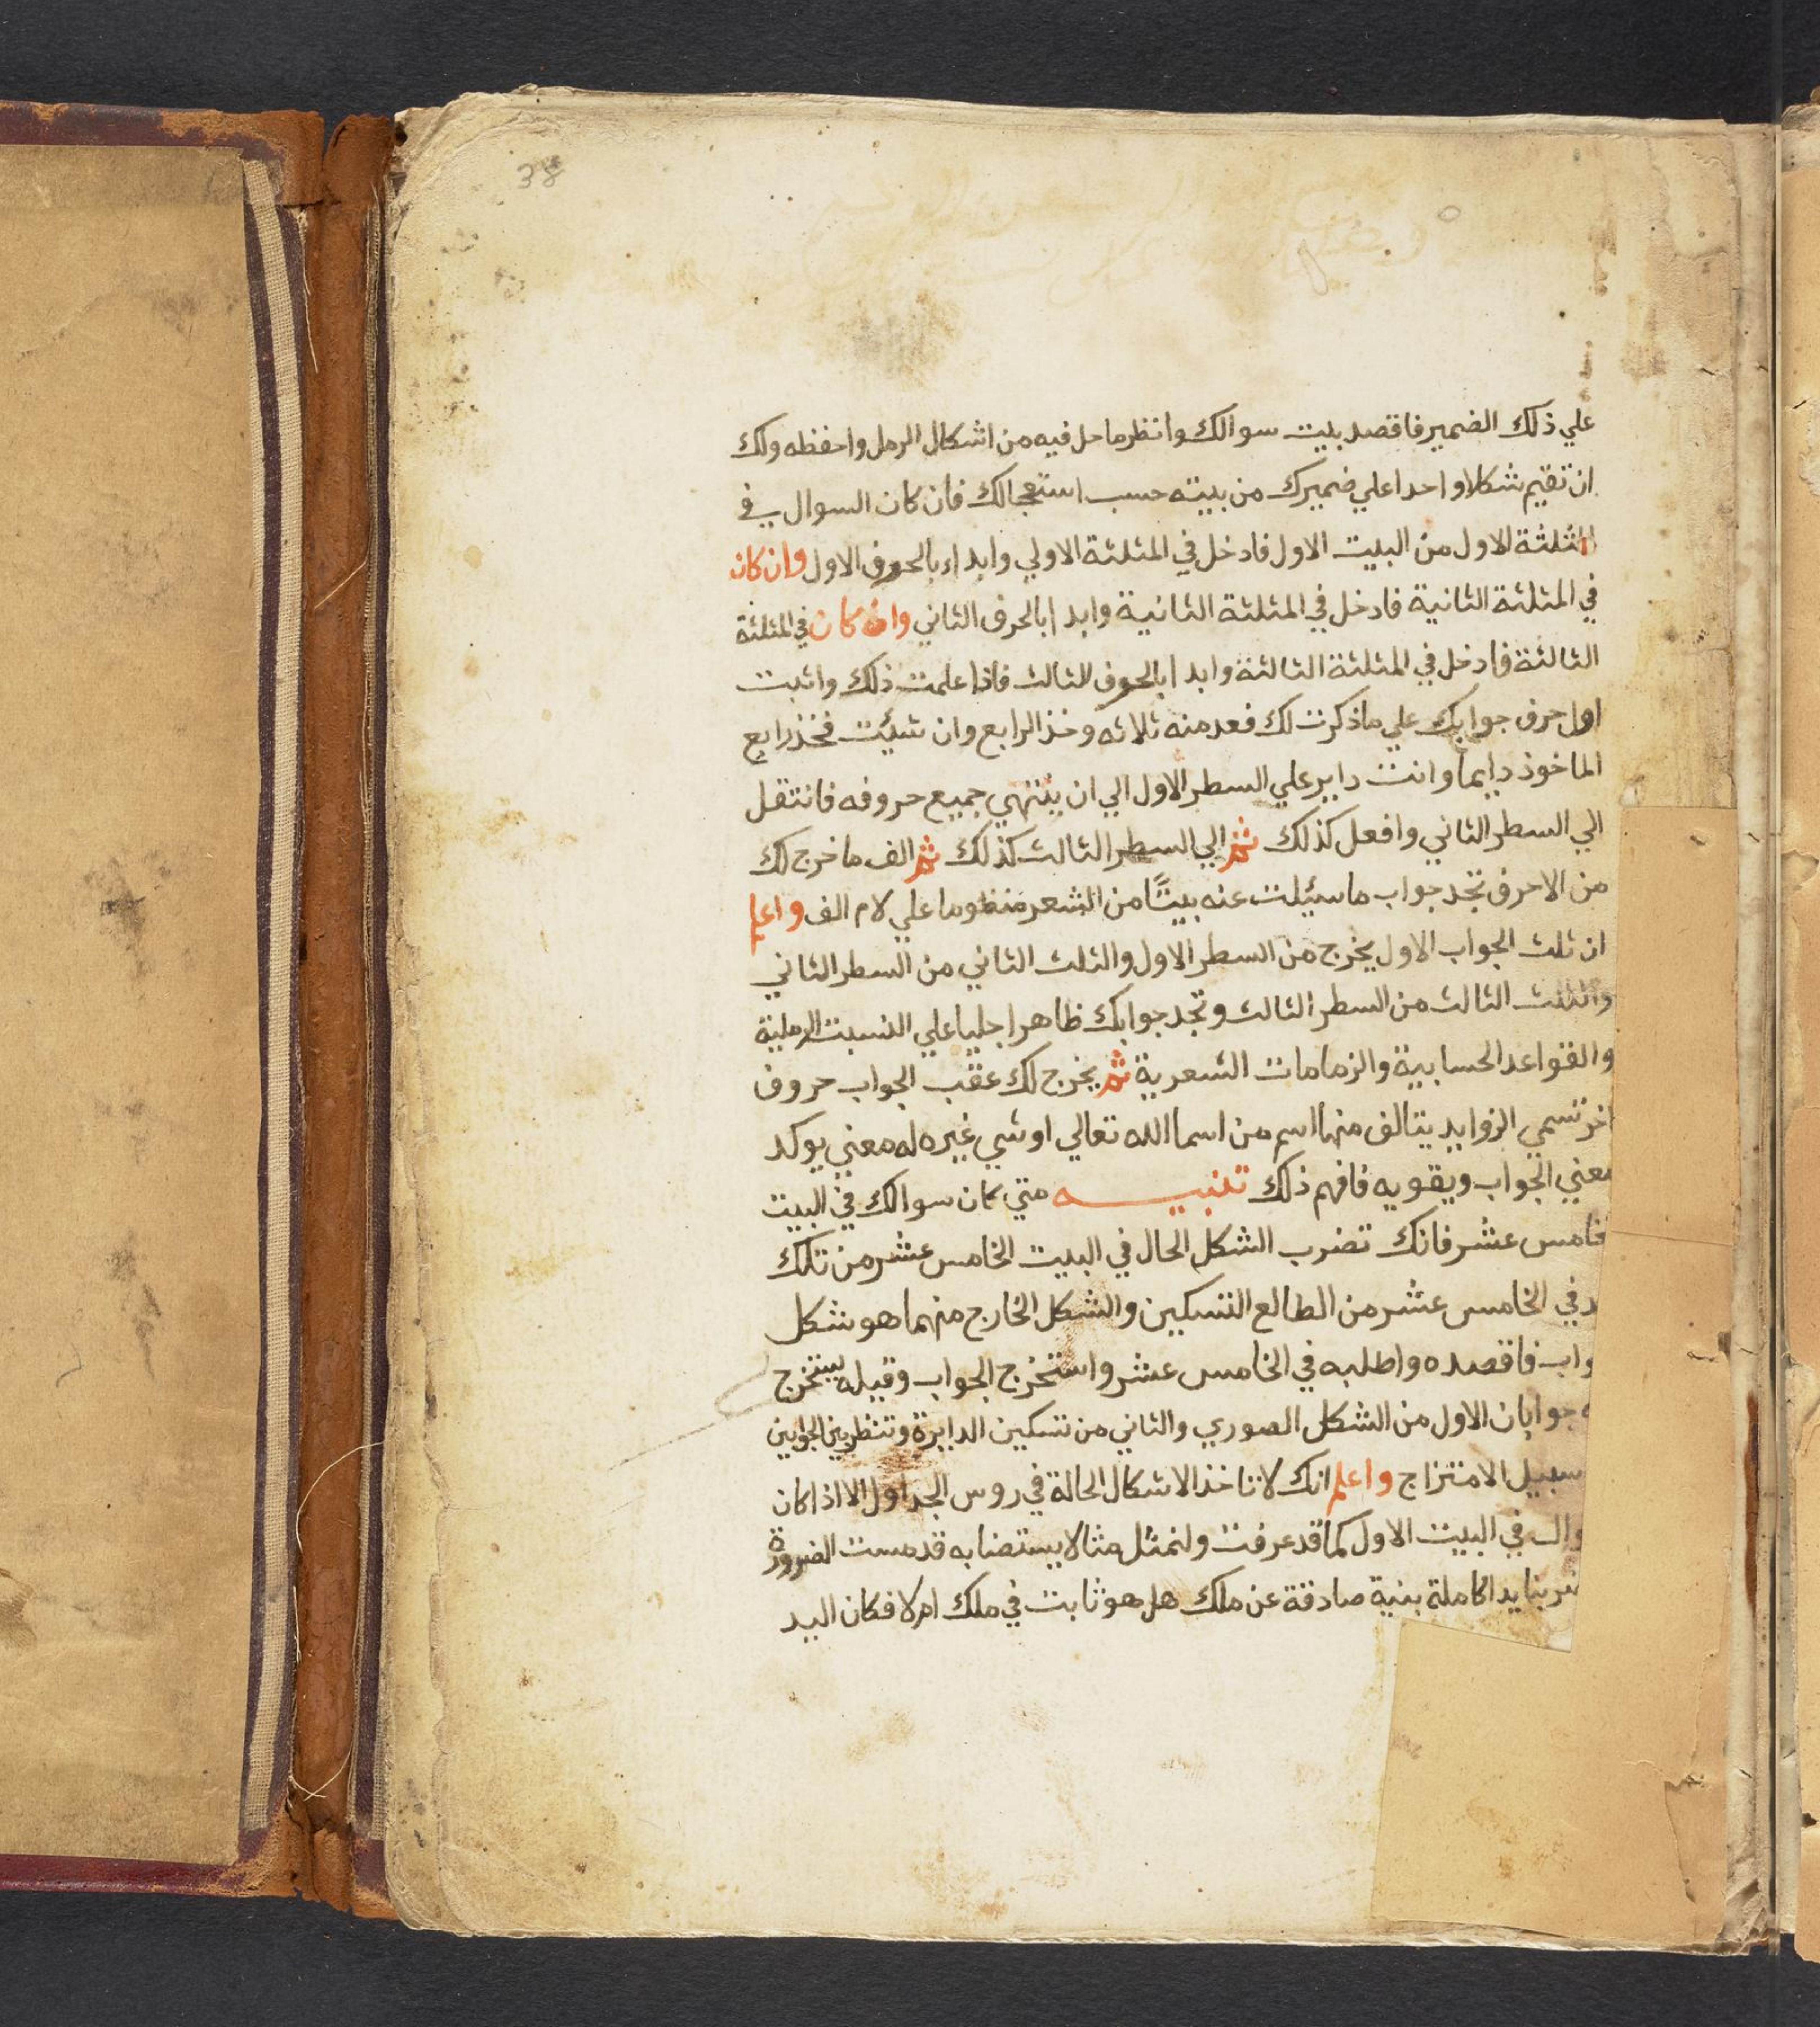 38
علي ذلك الضمير فاقصد بيت سوالك وانظر ما حل فيه من اشكال الرمل واحفظه ولك
ان تقيم شكلا واحدا علي ضميرك من بيته حسب استعجالك فان كان السوال في
المثلثة الاول من البيت الاول فادخل في المثلثة الاولي وابداء بالحروف الاول وان كان
في المثلثة الثانية فادخل في المثلثة الثانية وابدا بالحرف الثاني وان كان في المثلثة
الثالثة فادخل في المثلثة الثالثة وابدا بالحرف الثالث فاذا علمت ذلك واثبت
اول حرف جوابك علي ما ذكرت لك فعد منه ثلاثه وخذ الرابع وان شيئت فخذ رابع
الماخوذ دايما وانت داير علي السطر الاول الي ان ينتهي جميع حروفه فانتقل
الي السطر الثاني وافعل كذلك ثم الي السطر الثالث كذلك ثم الف ما خرج لك
من الاحرف تجد جواب ما سيئلت عنه بيتًا من الشعر منظوما علي لام الف واعلم
ان ثلث الجواب الاول يخرج من السطر الاول والثلث الثاني من السطر الثاني
والثلث الثالث من السطر الثالث وتجد جوابك ظاهرا جليا علي النسبت الرملية
والقواعد الحسابية والزمامات الشعرية ثم يخرج لك عقب الجواب حروف
اخر تسمي الزوايد يتالف منها اسم من اسما الله تعالي او شي غيره له معني يوكد
معني الجواب ويقويه فافهم ذلك تنبيه متي كان سوالك في البيت
خامس عشر فانك تضرب الشكل الحال في البيت الخامس عشر من تلك
د في الخامس عشر من الطالع التسكين والشكل الخارج منهما هو شكل
واب فاقصده واطلبه في الخامس عشر واستخرج الجواب وقيله يستخرج
جوابان الاول من الشكل الصوري والثاني من تسكين الدايرة وتنظر بين الجوابين
سبيل الامتزاج واعلم انك لا تاخذ الاشكال الحالة في روس الجداول الا اذا كان
وال في البيت الاول كما قد عرفت ولنمثل مثالا يستضا به قد مست الضرورة
ضربنا يدا كاملة بنية صادقة عن ملك هل هو ثابت في ملك ام لا فكان اليد